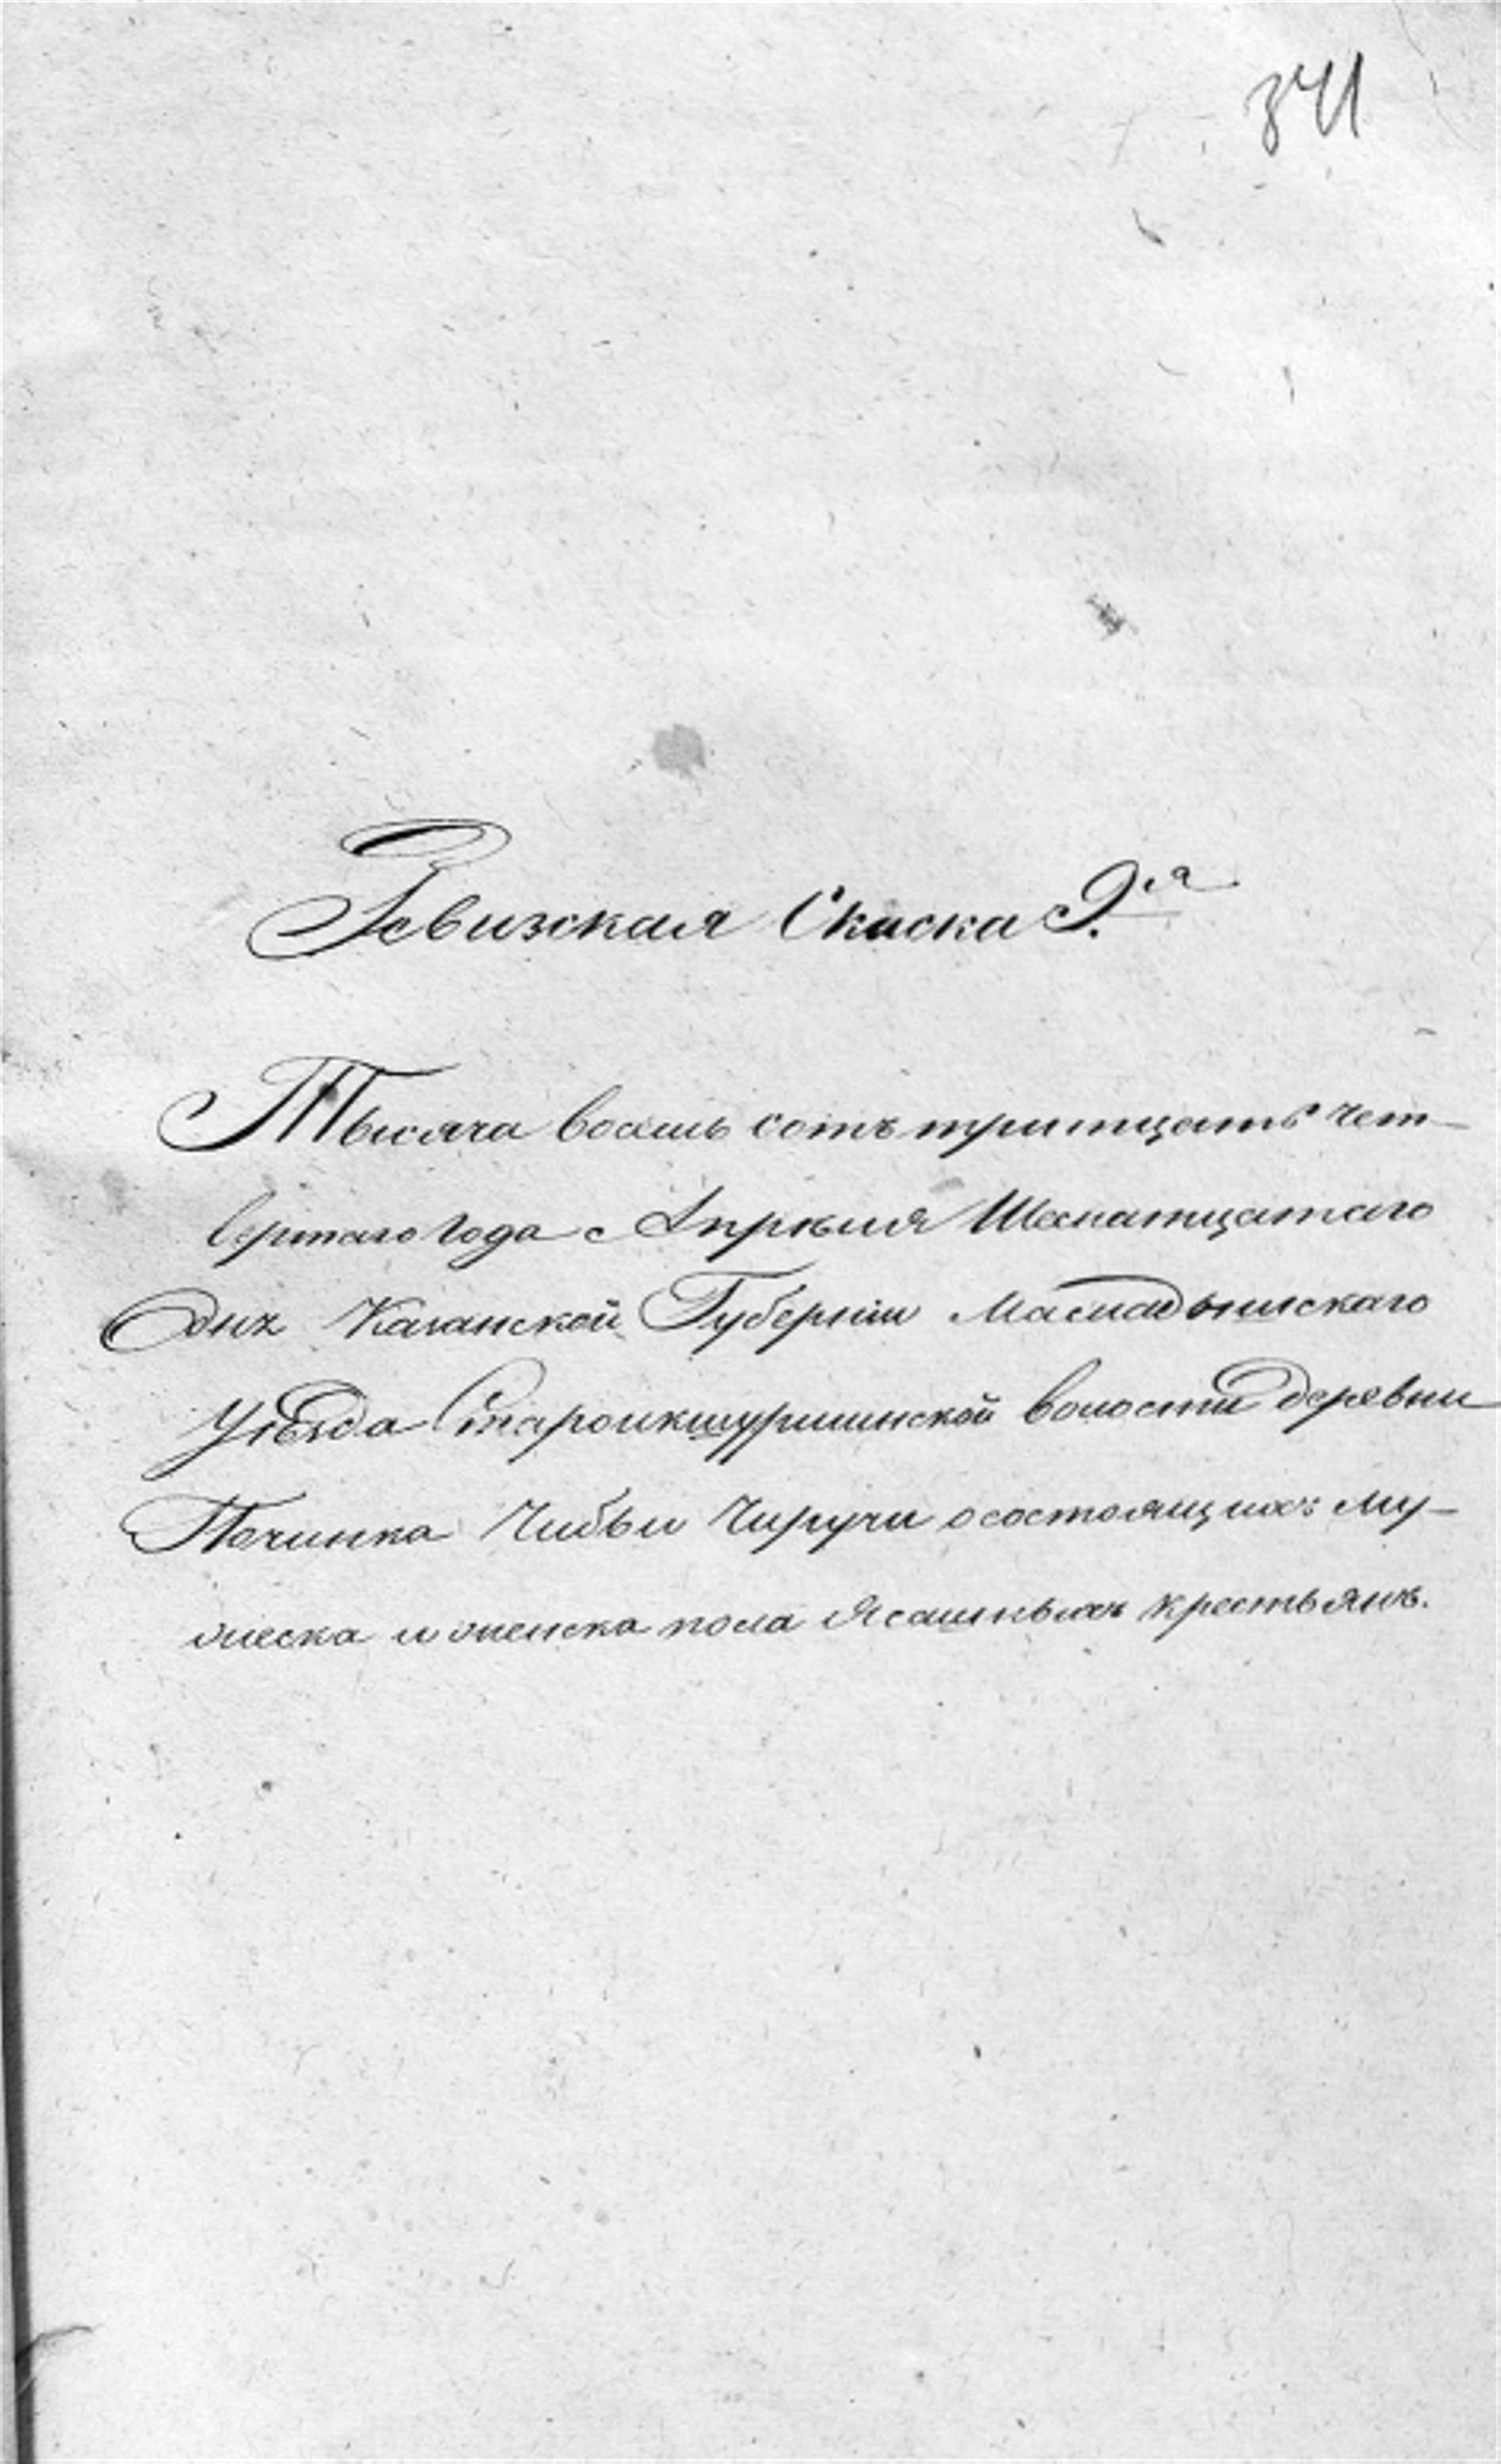 341
Ревизская Скаска 9.ая
Тысяча восемь сотъ тритцать чет-
вертаго года Апреля Шеснатцатаго
дня Казанской Губернїи Мамадышскаго
Уезда Староикшурминской волости деревни
Починка Чибьи Чиручи осостоящихъ му-
жеска и женска пола Ясашныхъ крестьянъ.